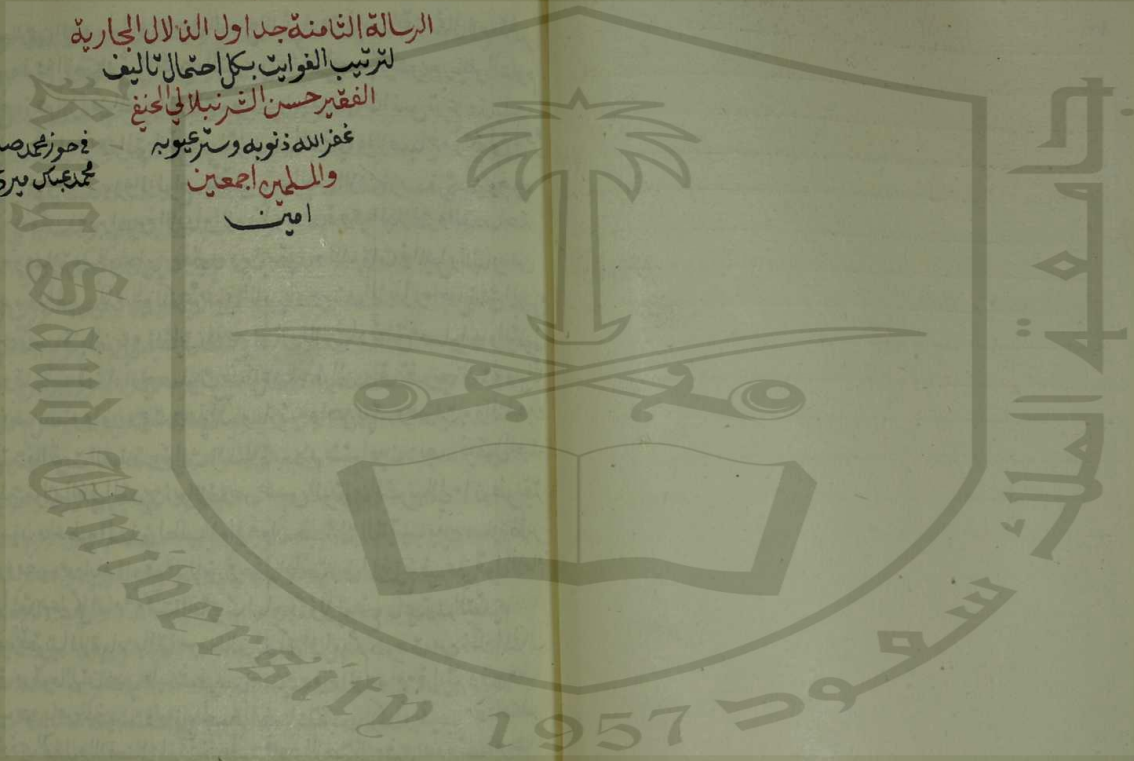 الرسالة الثامنة جداول الزلال الجارية
لترتيب الفوايت بكل احتمال تاليف
الفقير حسن الشرنبلالي الحنفي
غفر الله ذنوبه وستر عيوبه
والمسلمين اجمعين
امين
في حوز محمد
محمد عباس
جامعة الملك سعود
King Saud University 1957